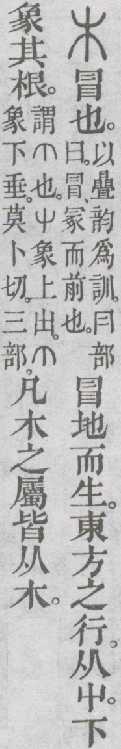 木冒也。以疊韵爲訓。冃部曰。冒、冡而前也。冒地而生。東方之行。从屮。下
象其根。謂∩也。屮象上出。∩象下垂。莫卜切。三部。凡木之屬皆从木。